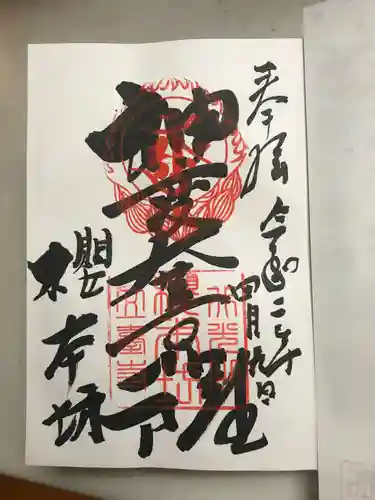 奉拝 令和二年
四月九日
神変大菩薩
櫻本坊